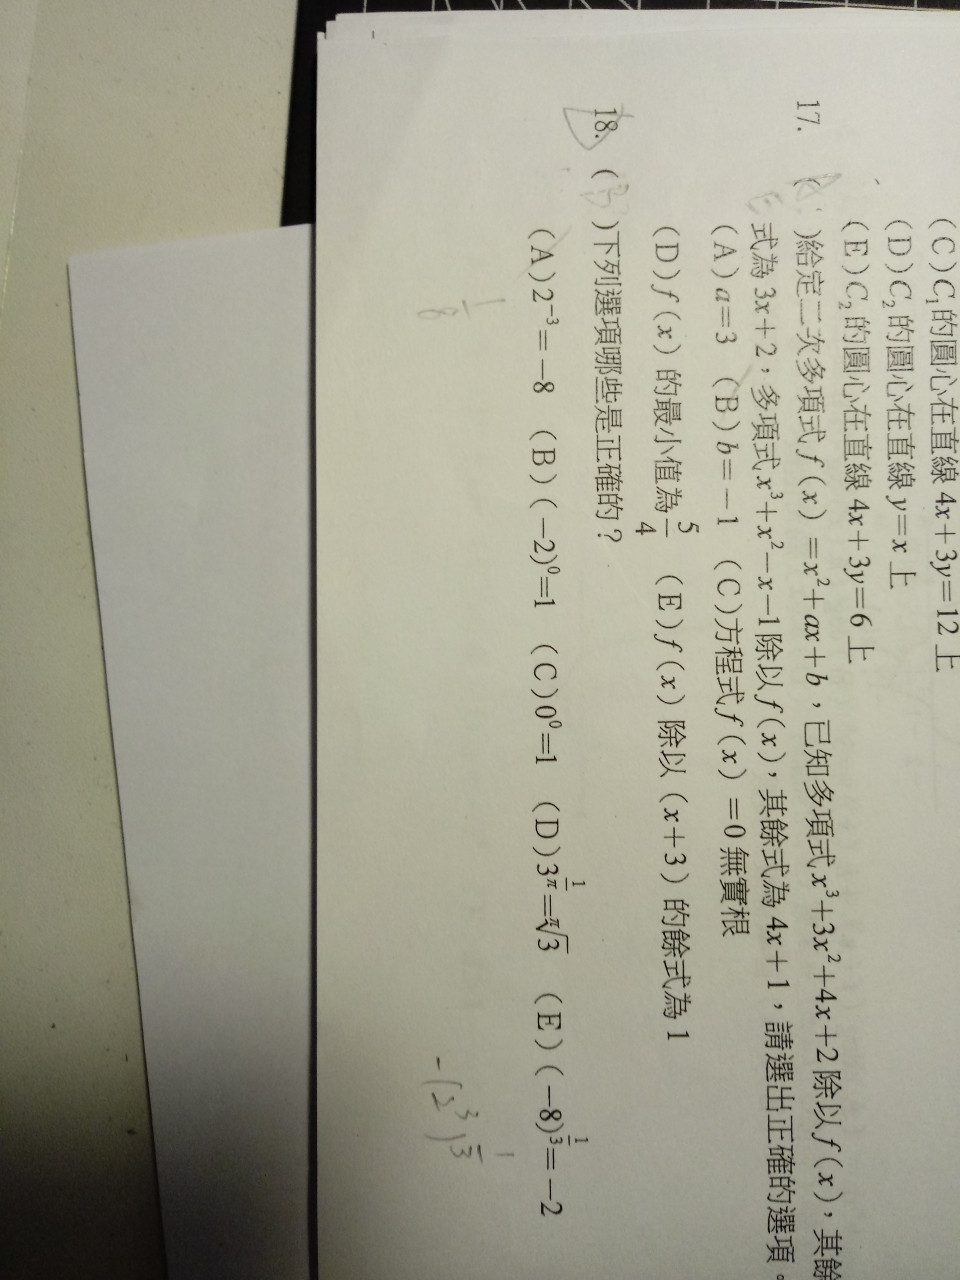 (C)C₁的圓心在直線 4x+3y=12 上
(D)C₂的圓心在直線 y=x 上
(E)C₂的圓心在直線 4x+3y=6 上
17. ( )給定二次多項式 f(x)=x²+ax+b，已知多項式 x³+3x²+4x+2 除以 f(x)，其餘
式為 3x+2，多項式 x³+x²−x−1 除以 f(x)，其餘式為 4x+1，請選出正確的選項。
(A)a=3 (B)b=−1 (C)方程式 f(x)=0 無實根
(D)f(x)的最小值為 5/4 (E)f(x)除以(x+3)的餘式為 1
18. (B)下列選項哪些是正確的？
(A)2⁻³=−8 (B)(−2)⁰=1 (C)0⁰=1 (D)3^(1/π)=^π√3 (E)(−8)^(1/3)=−2
1/8
−(2³)^(1/3)